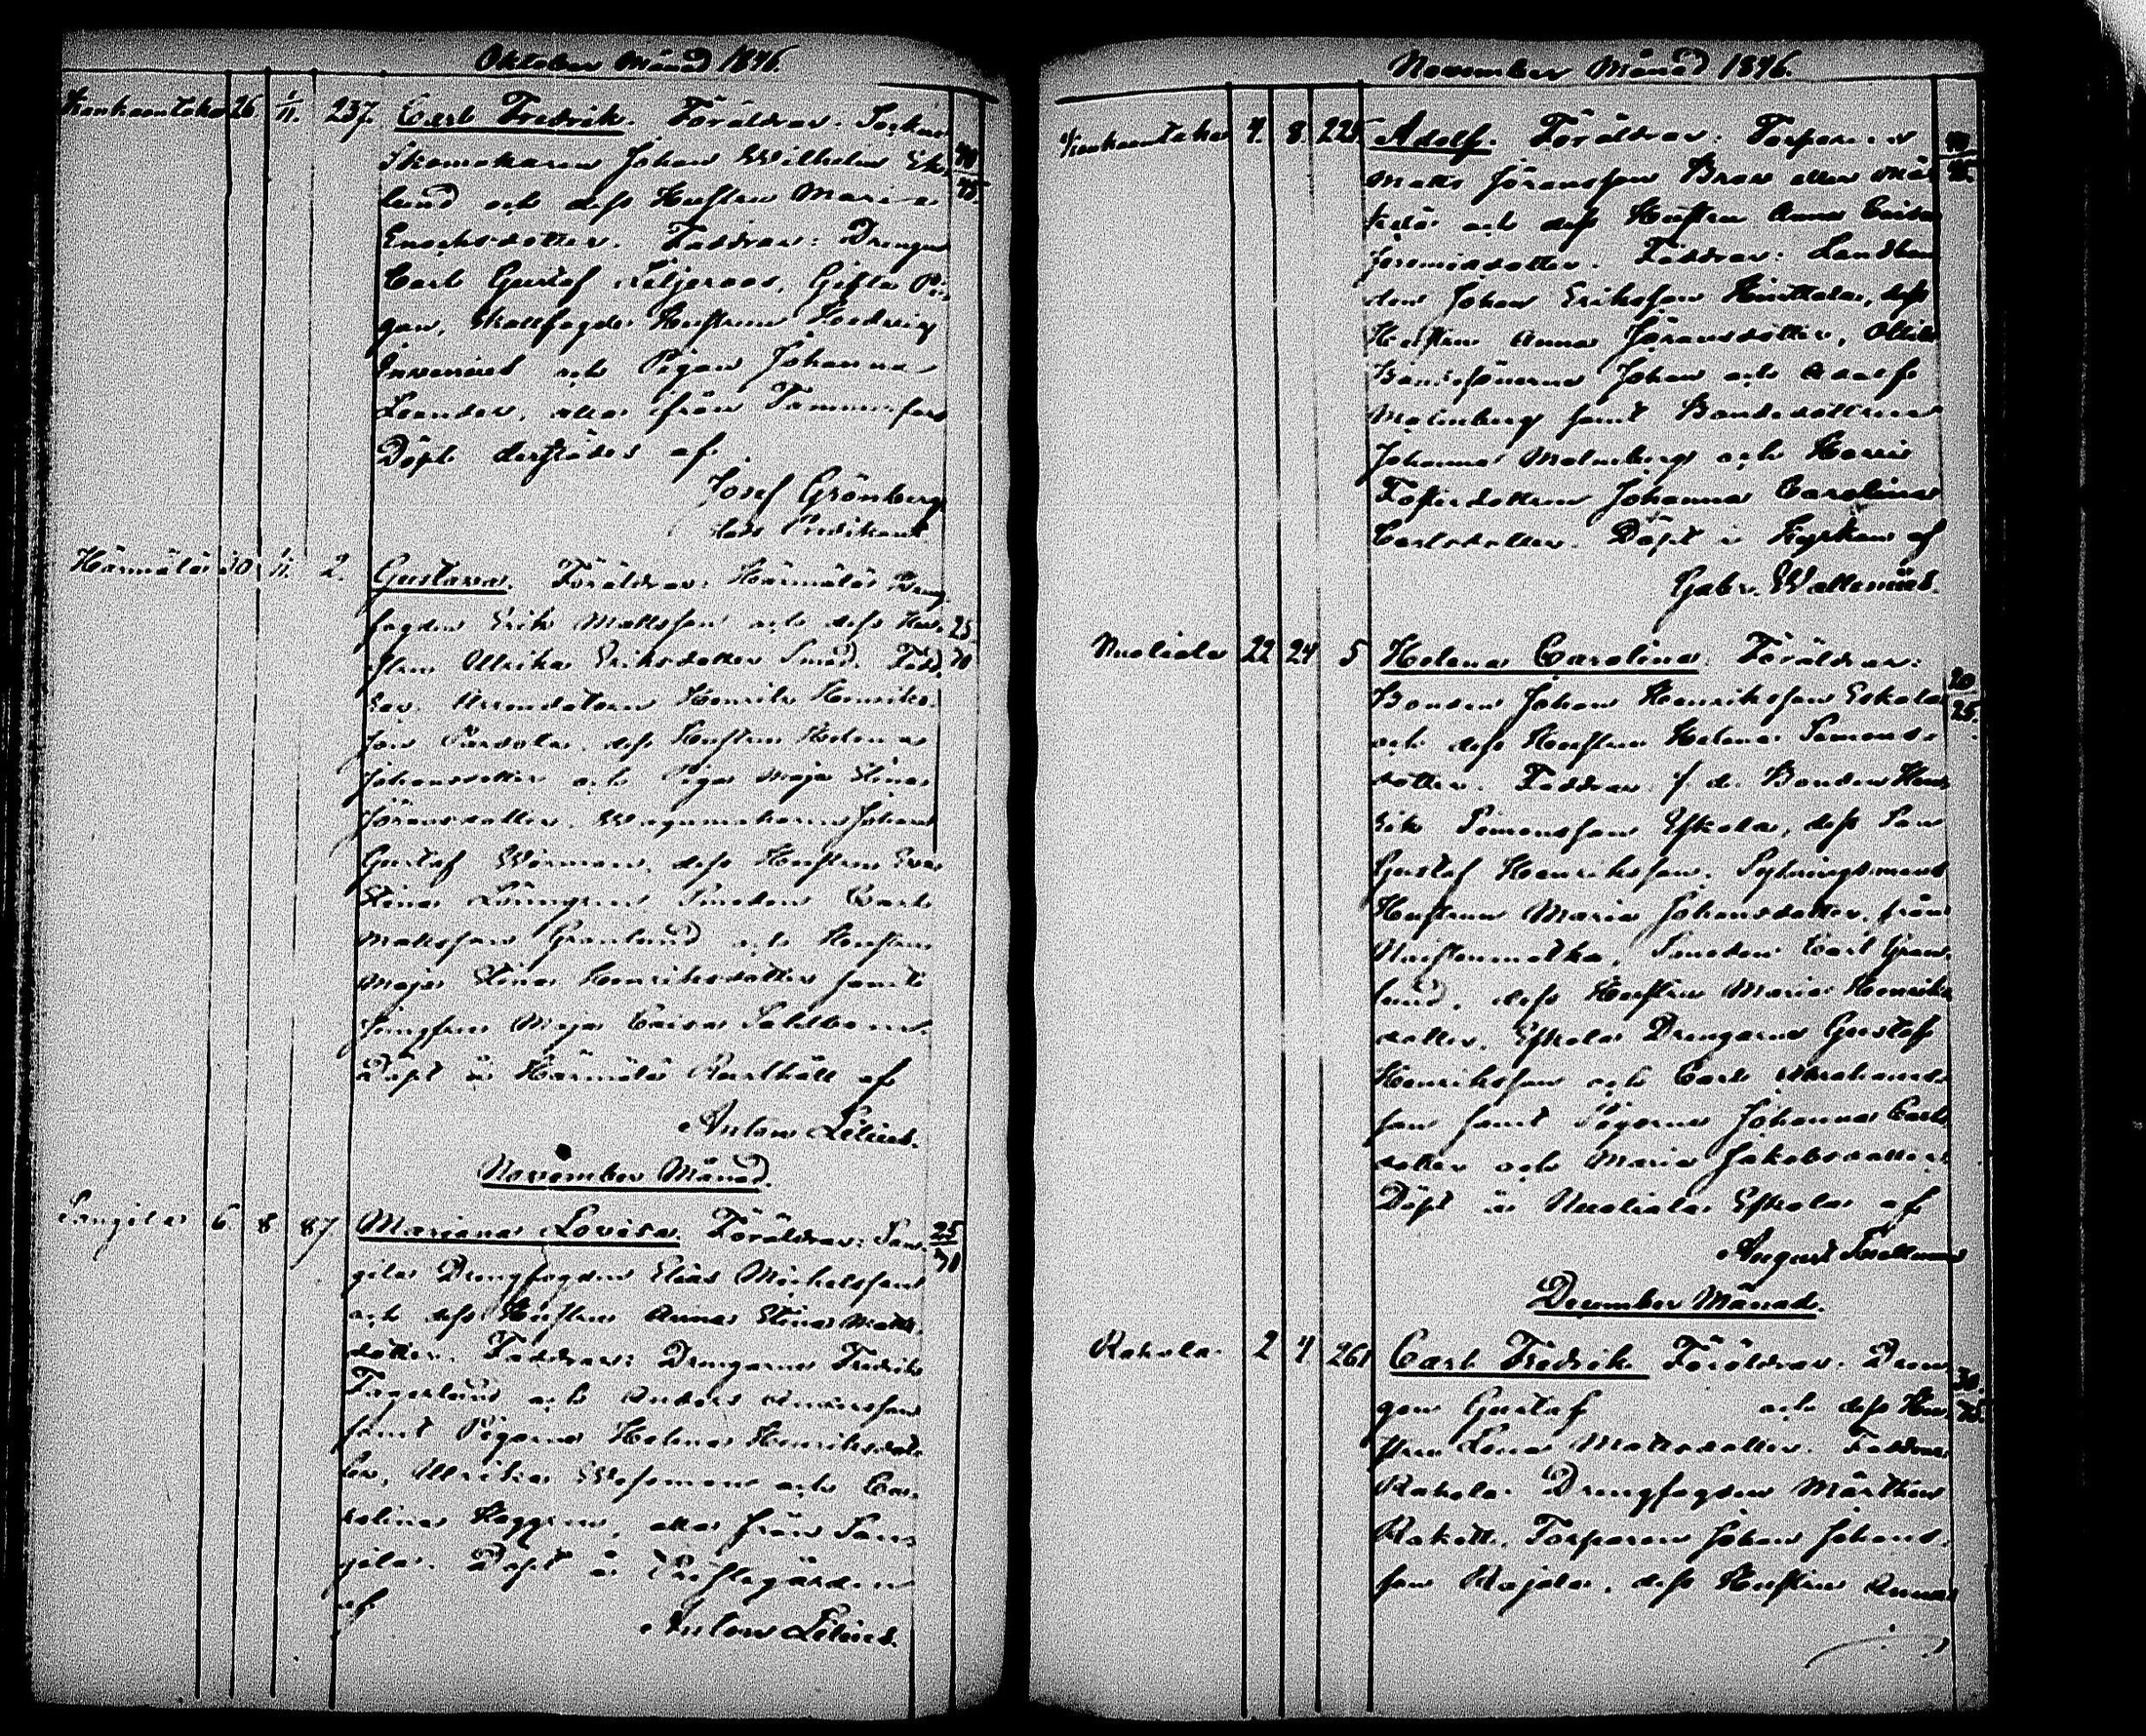 Oktober Månad 1846.
Kankaantaka 26 1/11. 237. Carl Fredrik. Föräldrar: Socken
Skomakaren Johan Wilhelm Ek-
lund och dess Hustru Maria
Enochsdotter. Faddrar: Drengen
Carl Gustaf Liljeroos, Gifta Pi-
gan, Hustrun Hedvig
och Pigan Johanna
Leander, alla från Tammerfors
Döpt derstädes af
Josef Grönberg
Predikant
Härmälä 30 1/11. 2. Gustava. Föräldrar: Härmälä Dreng-
fogden Erik Mattsson och dess Hu- 25
stru Ullrika Eriksdotter Smed. Fadd- 30
rar. Arrendatorn Henrik Henriks-
son dess Hustru Helena
Johansdotter och Pigan Maja Stina
Göransdotter. Wagnmakaren Johan
Gustaf dess Hustru Eva
Stina Löfgren Smeden Carl
Mattsson Granlund och Hustrun
Maja Stina Henriksdotter samt
Jungfrun Maja Caisa
Döpt å Härmälä Rusthåll af
Anton Lilius.
November Månad.
Sangila 6 8 87 Mariana Lovisa. Föräldrar: San- 25
gila Drengfogden Elias Michelsson 30
och dess Hustru Anna Stina Matts-
dotter. Faddrar: Drengarne Fredrik
Fagerlund och Anders Andersson
samt Pigorna Helena Henriksdot-
ter, Ullrika och Ca-
rolina Haggren, alla från San-
gila. Döpt å Prestegården
af
Anton Lilius.
November Månad 1846.
Kankaantaka 4. 8 225 Adolf. Föräldrar: Torparen
Matts Jöransson eller
och dess Hustru Anna Caisa
Jeremiasdotter. Faddrar: Landbon-
den Johan Eriksson dess
Hustru Anna Jöransdotter,
Bondesönerna Johan och Adolf
Malmberg samt Bondedöttrarna
Johanna Malmberg och
Johanna Carolina
Carlsdotter. Döpt i Kyrkan af
Gabr. Wallenius.
Nuoliala 22 24 5 Helena Carolina. Föräldrar:
Bonden Johan Henriksson Eskola 20
och dess Hustru Helena Simons- 25.
dotter. Faddrar: f. d. Bonden Hen-
rik Simonsson Eskola, dess Son
Gustaf Henriksson. Sytningsmans
Hustrun Maria Johansdotter, från
Naistenmatka, Smeden Carl Gran-
lund, dess Hustru Maria Henriks-
dotter, Eskola Drengarne Gustaf
Henriksson och Carl Abrahams-
son samt Pigorna Johanna Carls-
dotter och Maria Jakobsdotter
Döpt å Nuoliala Eskola af
August
December Månad.
Rahola. 2 4 261 Carl Fredrik. Föräldrar: Dren-
gen Gustaf och dess Hu- 30.
stru Lena Mattsdotter. Faddrar
Rahola Drengfogden Mårthen
Torparen Johan Johans-
son Rajala, dess Hustru Anna